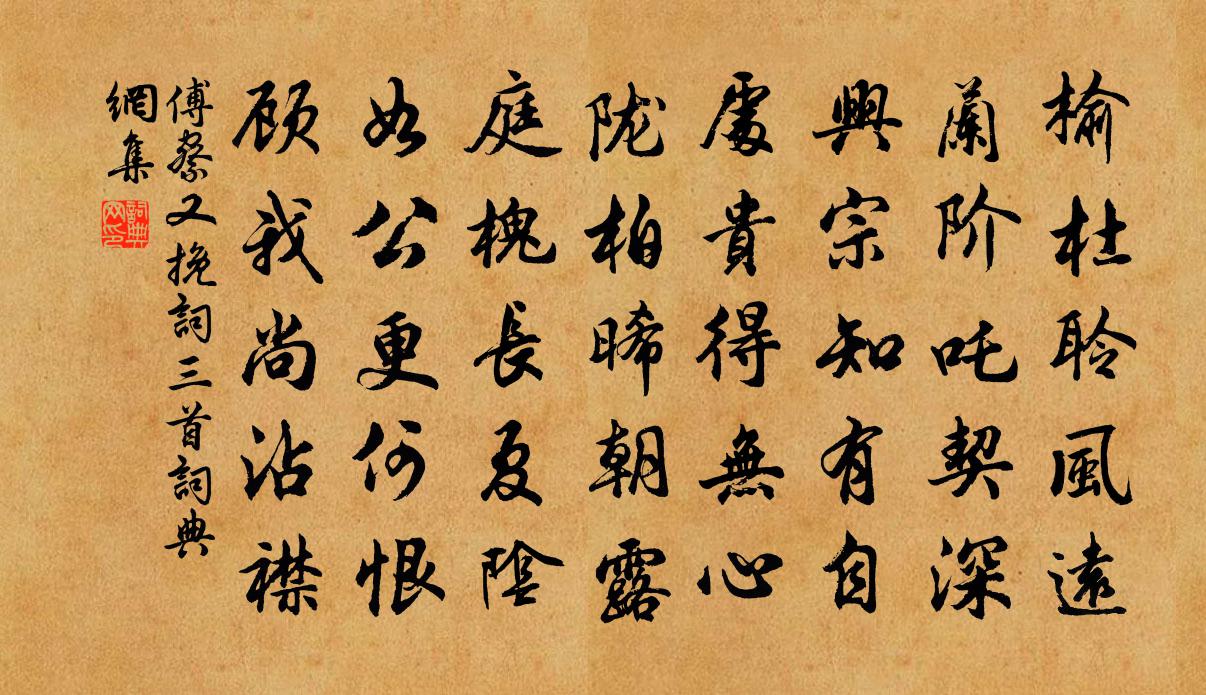 榆杜聆風遠
蘭阶吒契深
興宗知有自
處貴得無心
陇柏晞朝露
庭槐長夏陰
如公更何恨
顾我尚沾襟
傅察又挽詞三首詞典
網集
詞典
网印